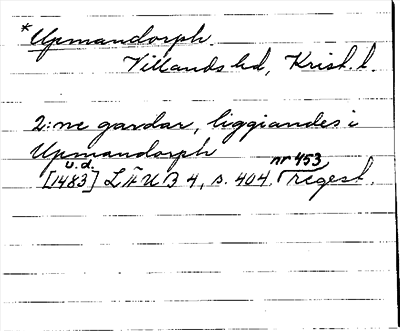 *Upmandorph.
Villands hd, Krist. l.
2:ne gardar, liggiandes i
Upmandorph
u.d. nr 453
[1483] LÄUB 4, s. 404. regest.